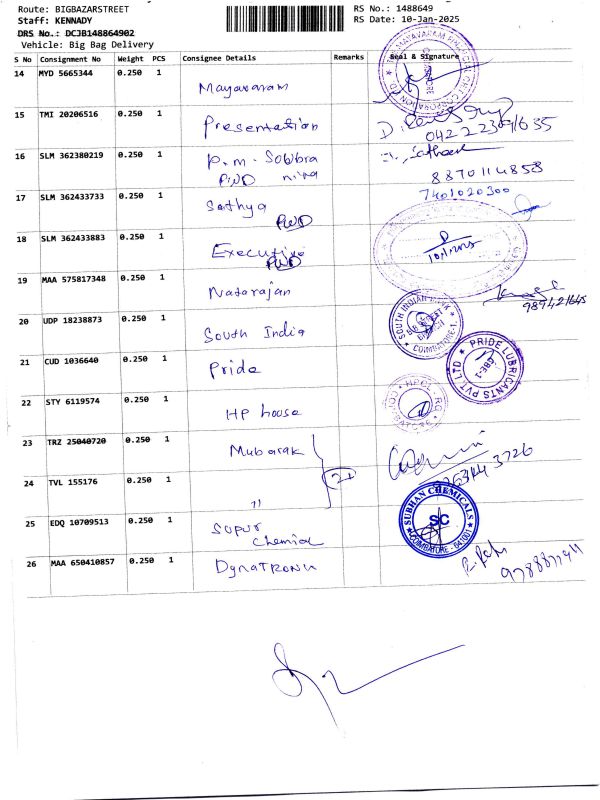 Route: BIGBAZARSTREET
RS No.: 1488649
Staff: KENNADY
RS Date: 10-Jan-2025
DRS No.: DCJB148864902
Vehicle: Big Bag Delivery
S No Consignment No Weight PCS Consignee Details Remarks Seal & Signature
14 MYD 5665344 0.250 1 Mayavaram
15 TMI 20206516 0.250 1 Presentation
16 SLM 362380219 0.250 1 P.M. Sobbra
8870114853
17 SLM 362433733 0.250 1 Sathya
7401020300
18 SLM 362433883 0.250 1 Executive
19 MAA 575817348 0.250 1 Natarajan
20 UDP 18238873 0.250 1 South India
SOUTH INDIAN BANK COIMBATORE-1
21 CUD 1036640 0.250 1 Pride
PRIDE LUBRICANTS PVT. LTD CBE-1
22 STY 6119574 0.250 1 HP house
23 TRZ 25040720 0.250 1 Mubarak
24 TVL 155176 0.250 1 "
25 EDQ 10709513 0.250 1 Supur
Chemical
SUBHAN CHEMICALS SC COIMBATORE - 641001
26 MAA 650410857 0.250 1 Dynatronu